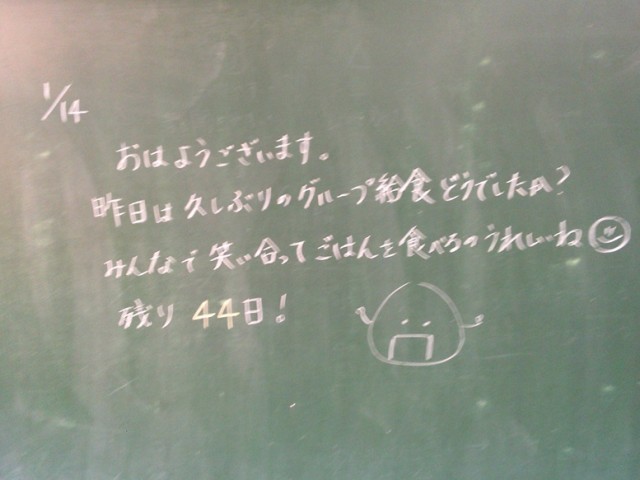 1/14
おはようございます。
昨日は久しぶりのグループ給食どうでしたか?
みんなで笑い合ってごはんを食べるのうれしいね
残り44日!